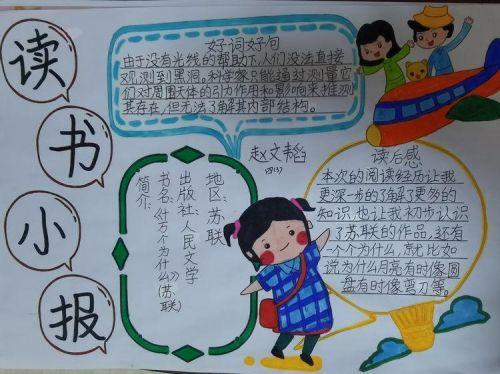 读
书
小
报
好词好句
由于没有光线的帮助下,人们没法直接
观测到黑洞。科学家只能通过测量它
们对周围天体的引力作用和影响来推测
其存在,但无法了解其内部结构。
赵文韬
地区:苏联
出版社:人民文学
书名:《十万个为什么》(苏联)
简介:
读后感
本次的阅读经历让我
更深一步的了解了更多的
知识,也让我初步认识
了苏联的作品,还有
一个个为什么,就比如
说为什么月亮有时像圆
盘有时像弯刀等。